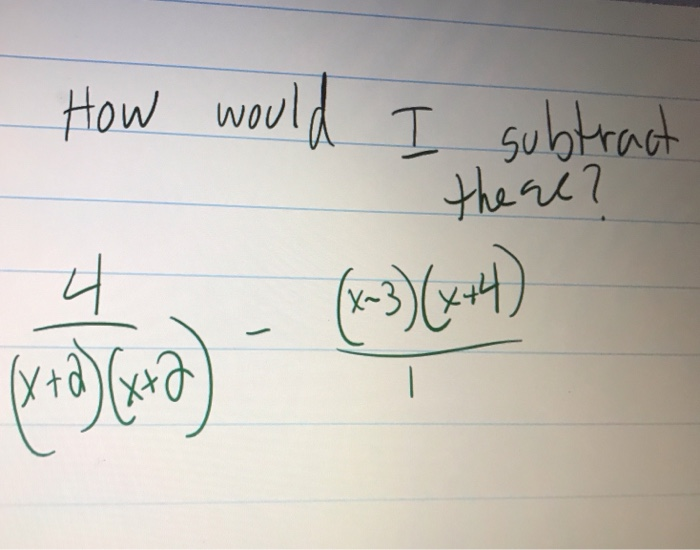 How would I subtract
these?
4 / (x+2)(x+2) - (x-3)(x+4) / 1